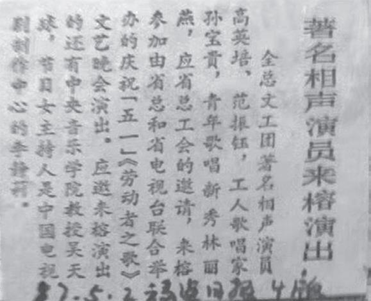 著名相声演员来榕演出
全总文工团著名相声演员
高英培、范振钰，工人歌唱家
孙宝贵，青年歌唱新秀林丽
燕，应省总工会的邀请，来榕
参加由省总和省电视台联合举
办的庆祝“五一”《劳动者之歌》
文艺晚会演出。应邀来榕演出
的还有中央音乐学院教授吴天
球，节目女主持人是中国电视
剧制作中心的李诗荷。
87.5.2 福建日报 4版